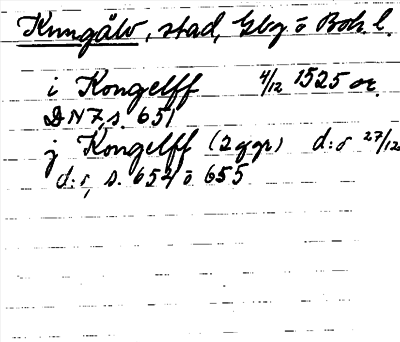 Kungälv, stad, Gbg o Boh. l.
i Kongelff 4/12 1525 or.
DN 7, s. 651
j Kongelff (2 ggr) d:o 27/12
d:o, s. 654 o 655